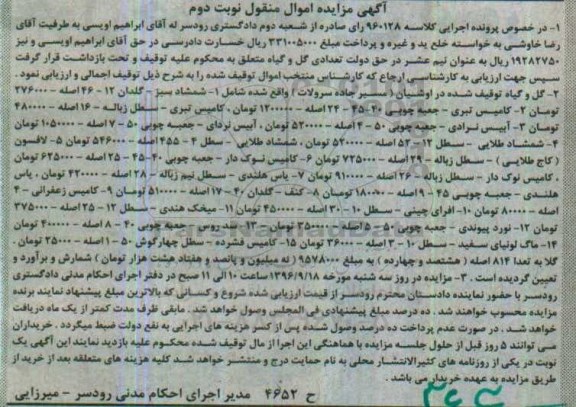 آگهی مزایده اموال منقول نوبت دوم
۱- در خصوص پرونده اجرایی کلاسه ۹۶۰۱۲۸ رای صادره از شعبه دوم دادگستری رودسر له آقای ابراهیم اویسی به طرفیت آقای
رضا خاوشی به خواسته خلع ید و غیره و پرداخت مبلغ ۳۳۱۰۰۵۰۰۰ ریال خسارت دادرسی در حق آقای ابراهیم اویسی و نیز
۱۹۲۸۲۷۵۰ ریال به عنوان نیم عشر در حق دولت تعدادی گل و گیاه متعلق به محکوم علیه توقیف و تحت بازداشت قرار گرفت
سپس جهت ارزیابی به کارشناسی ارجاع که کارشناس منتخب اموال توقیف شده را به شرح ذیل توقیف اجمالی و ارزیابی نمود .
۲- گل و گیاه توقیف شده در اوشیان ( مسیر جاده سرولات ) واقع شده شامل ۱- شمشاد سبز - گلدان ۱۲ - ۴۶ اصله - ۲۷۶۰۰۰
تومان ۲- کامیس تبری - جعبه چوبی ۴۰-۴۵ - ۲۴ اصله - ۱۲۰۰۰۰۰ تومان ، کامیس تبری - سطل زباله - ۱۶ اصله - ۴۸۰۰۰۰
تومان ۳- آبیس نرادی - جعبه چوبی ۵۰ - ۴ اصله - ۵۲۰۰۰۰ تومان ، آبیس نردای - جعبه چوبی ۵۰ - ۷ اصله - ۱۰۵۰۰۰۰ تومان
۴- شمشاد طلایی - سطل ۱۲ - ۵۲ اصله - ۵۲۰۰۰۰ تومان ، شمشاد طلایی - سطل ۴ - ۴۵۵ اصله - ۵۴۶۰۰۰ تومان ۵- لافسون
( کاج طلایی ) - سطل زباله - ۲۹ اصله - ۷۲۵۰۰۰ تومان ۶- کامیس نوک دار - جعبه چوبی ۴۰-۴۵ - ۲۵ اصله - ۶۲۵۰۰۰ تومان
، کامیس نوک دار - سطل زباله - ۲۶ اصله - ۹۱۰۰۰۰ تومان ۷- یاس هلندی - سطل نیم زباله - ۲۸ اصله - ۴۲۰۰۰۰ تومان ، یاس
هلندی - جعبه چوبی ۴۵ - ۹ اصله - ۱۸۰۰۰۰ تومان ۸- کنف - گلدان ۴۰ - ۱۷ اصله - ۵۱۰۰۰۰ تومان ۹- کامیس زعفرانی - ۴
اصله - ۸۰۰۰۰ تومان ۱۰- افرای چینی - سطل ۱۰ - ۳۰ اصله - ۴۵۰۰۰۰ تومان ۱۱- میخک هندی - سطل ۱۲ - ۲۵ اصله - ۳۷۵۰۰۰
تومان ۱۲- نورد پیوندی - جعبه چوبی ۵۰ - ۵ اصله - ۲۵۰۰۰۰ تومان ۱۳- سدروس - جعبه چوبی ۴۰ - ۸ اصله - ۴۰۰۰۰۰ تومان
۱۴- ماگ لونیای سفید - سطل ۱۰ - ۳ اصله - ۳۶۰۰۰ تومان ۱۵- کامیس فشرده - سطل چهارگوش ۵۰ - ۱ اصله - ۲۵۰۰۰ تومان .
گلا به تعدا ۸۱۴ اصله ( هشتصد و چهارده ) به مبلغ ۹۵۷۸۰۰۰ ( نه میلیون و پانصد و هفتاد هشت هزار تومان ) شمارش و برآورد و
تعیین گردیده است . ۳- مزایده در روز سه شنبه مورخه ۱۳۹۶/۹/۱۸ ساعت ۱۰ الی ۱۱ صبح در دفتر اجرای احکام مدنی دادگستری
رودسر با حضور نماینده دادستان محترم رودسر از قیمت ارزیابی شده شروع و کسانی که بالاترین مبلغ پیشنهاد نمایند برنده
مزایده محسوب خواهند شد . ده درصد مبلغ پیشنهادی فی المجلس وصول خواهد شد . مابقی ظرف مدت کمتر از یک ماه دریافت
خواهد شد . در صورت عدم پرداخت ده درصد وصول شده پس از کسر هزینه های اجرایی به نفع دولت ضبط میگردد . خریداران
می توانند ۵ روز قبل از حلول جلسه مزایده با هماهنگی این اجرا از مال توقیف شده محکوم علیه بازدید نمایند این آگهی یک
نوبت در یکی از روزنامه های کثیرالانتشار محلی به نام حمایت درج و منتشر خواهد شد کلیه هزینه های متعلقه بعد از خرید از
طریق مزایده به عهده خریدار می باشد .
ح ۴۶۵۲ مدیر اجرای احکام مدنی رودسر - میرزایی